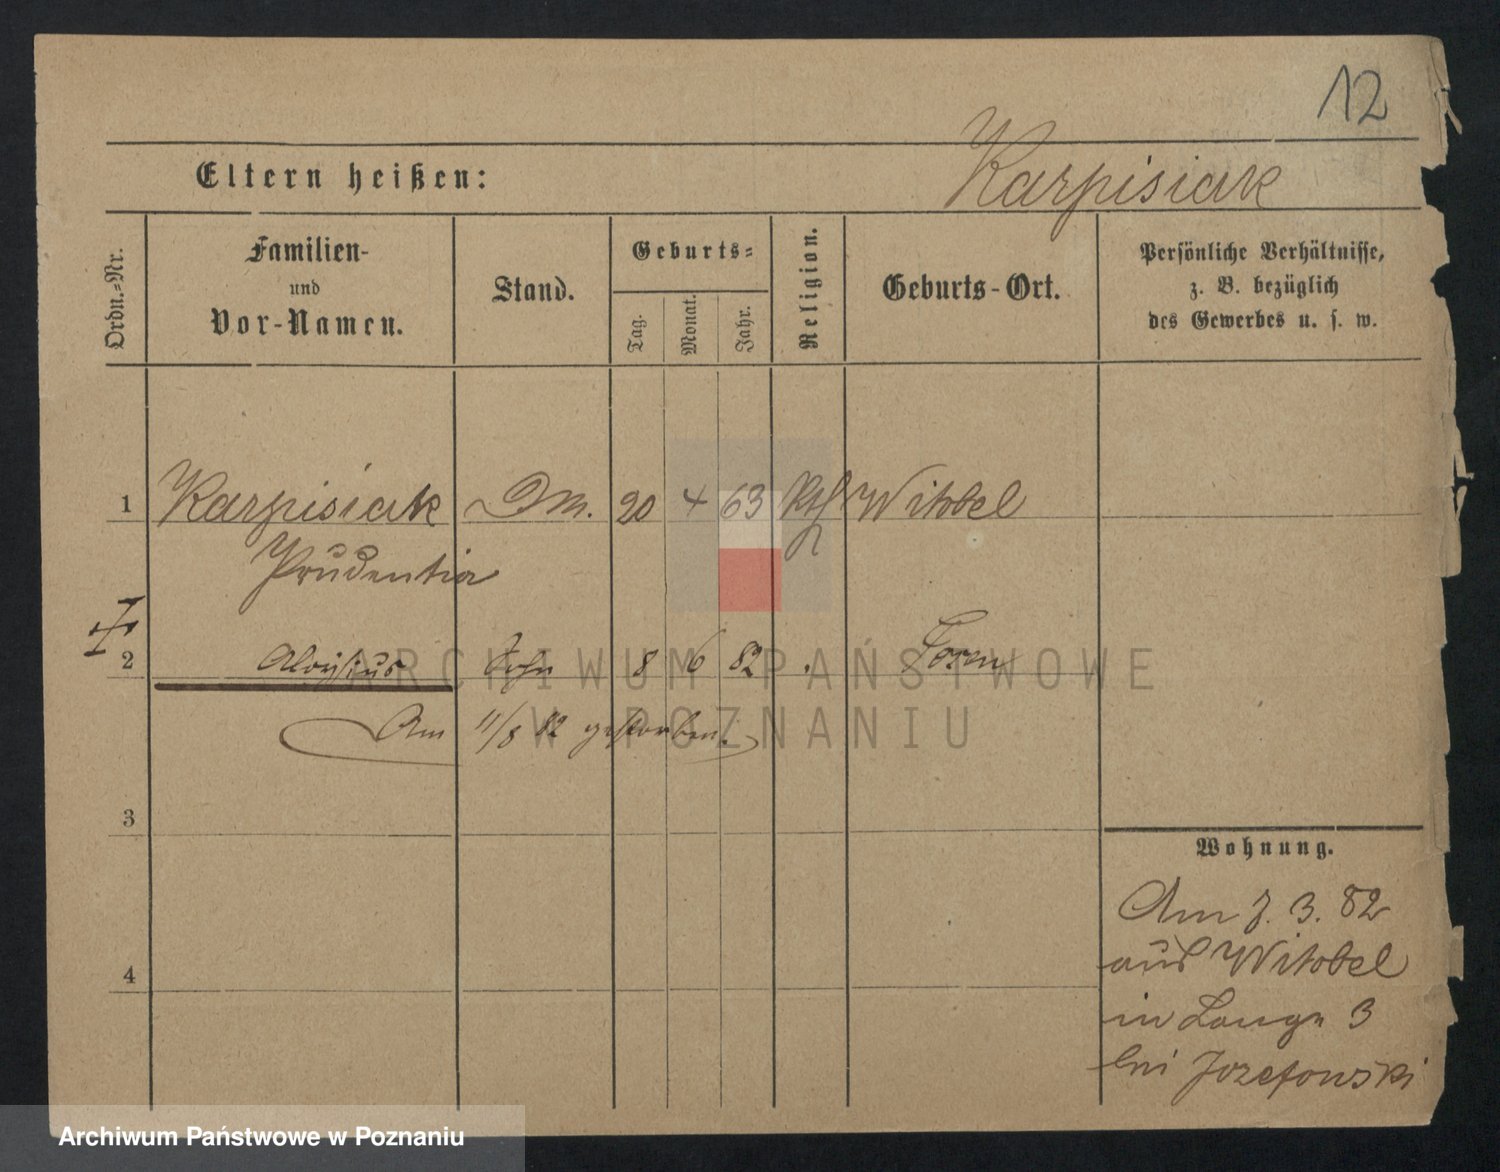 12
Eltern heißen:
Karpisiak
Ordn.-Nr.
Familien-
und
Vor-Namen.
Stand.
Geburts-
Tag.
Monat.
Jahr.
Religion.
Geburts-Ort.
Persönliche Verhältnisse,
z. B. bezüglich
des Gewerbes u. s. w.
1 Karpisiak DM. 20 4 63 Kth Witobel
Prudentia
2 Aloisius Sohn 8 6 82 Posen
Am 11/8 82 gestorben.
3
4
Wohnung.
Am 7. 3. 82
aus Witobel
in Lange 3
bei Jozefowski
ARCHIWUM PAŃSTWOWE
W POZNANIU
Archiwum Państwowe w Poznaniu